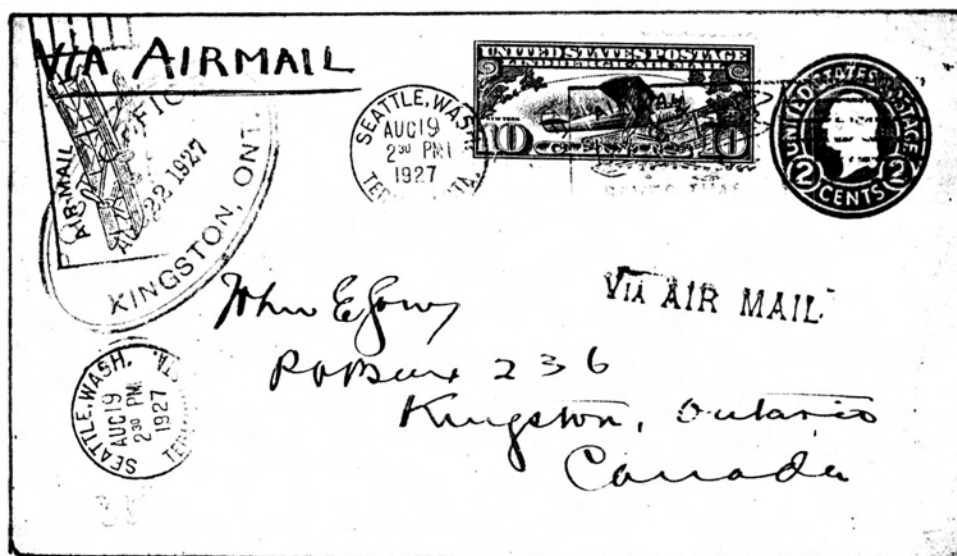 VIA AIRMAIL
AIR MAIL
AUG 22 1927
KINGSTON, ONT.
SEATTLE, WASH.
AUG 19
2 30 PM
1927
UNITED STATES POSTAGE
LINDBERGH AIR MAIL
10 10
UNITED STATES POSTAGE
2 CENTS 2
VIA AIR MAIL.
John E
236
Kingston, Ontario
Canada
SEATTLE, WASH.
AUG 19
2 30 PM
1927